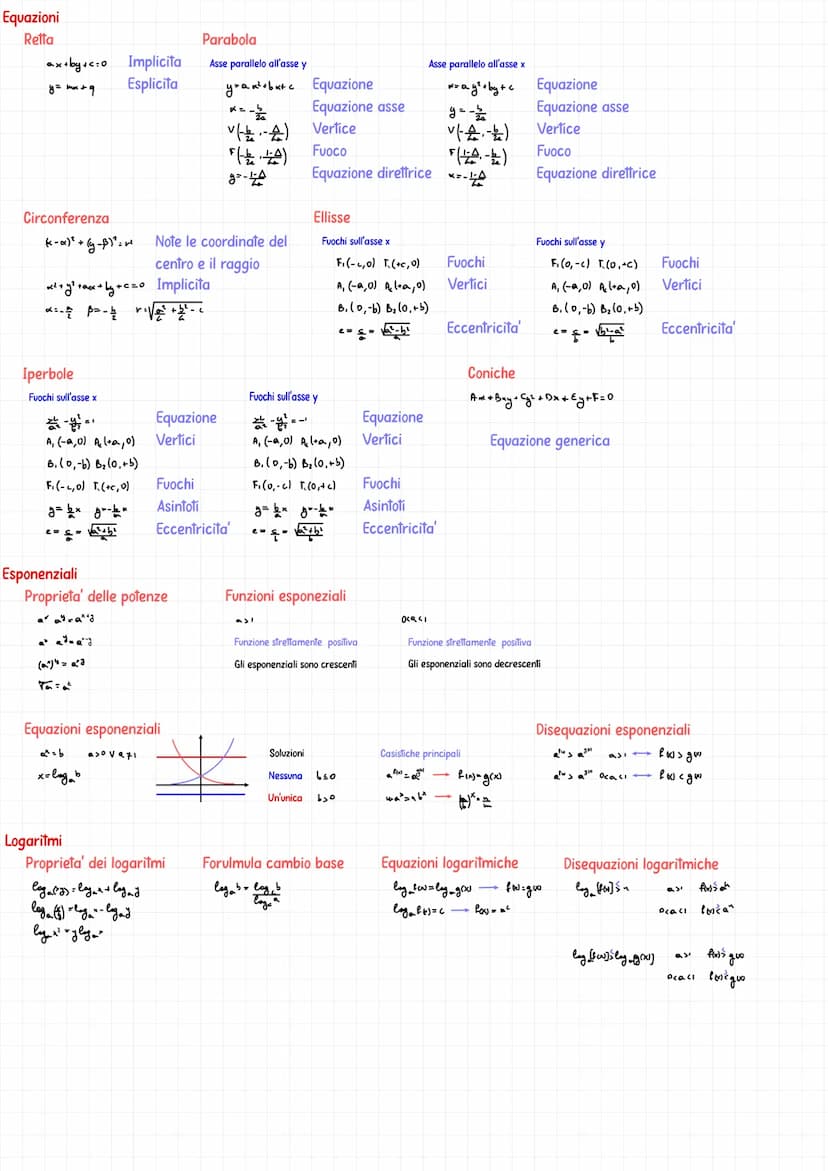 Equazioni
Retta
ax+by+c=0 Implicita
y=mx+q Esplicita
Parabola
Asse parallelo all'asse y
y=ax²+bx+c Equazione
x=-b/2a Equazione asse
V(-b/2a,-Δ/4a) Vertice
F(-b/2a,1-Δ/4a) Fuoco
y=-1-Δ/4a Equazione direttrice
Asse parallelo all'asse x
x=ay²+by+c Equazione
y=-b/2a Equazione asse
V(-Δ/4a,-b/2a) Vertice
F(1-Δ/4a,-b/2a) Fuoco
x=-1-Δ/4a Equazione direttrice
Circonferenza
Note le coordinate del
centro e il raggio
x²+y²+ax+by+c=0 Implicita
α=-a/2 β=-b/2
Ellisse
Fuochi sull'asse x
F₁(-c,0) F₂(+c,0) Fuochi
A₁(-a,0) A₂(+a,0) Vertici
B₁(0,-b) B₂(0,+b)
e=c/a=√a²-b²/a Eccentricita'
Fuochi sull'asse y
F₁(0,-c) F₂(0,+c) Fuochi
A₁(-a,0) A₂(+a,0) Vertici
B₁(0,-b) B₂(0,+b)
e=c/b=√b²-a²/b Eccentricita'
Iperbole
Fuochi sull'asse x
x²/a²-y²/b²=1 Equazione
A₁(-a,0) A₂(+a,0) Vertici
B₁(0,-b) B₂(0,+b)
F₁(-c,0) F₂(+c,0) Fuochi
y=b/a x y=-b/a x Asintoti
e=c/a=√a²+b²/a Eccentricita'
Fuochi sull'asse y
x²/a²-y²/b²=-1 Equazione
A₁(-a,0) A₂(+a,0) Vertici
B₁(0,-b) B₂(0,+b)
F₁(0,-c) F₂(0,+c) Fuochi
y=b/a x y=-b/a x Asintoti
e=c/b=√a²+b²/b Eccentricita'
Coniche
Equazione generica
Esponenziali
Proprieta' delle potenze
Funzioni esponeziali
a>1
Funzione strettamente positiva
Gli esponenziali sono crescenti
0<a<1
Funzione strettamente positiva
Gli esponenziali sono decrescenti
Equazioni esponenziali
aˣ=b a>0 ∨ a≠1
x=logₐb
Soluzioni
Nessuna b≤0
Un'unica b>0
Casistiche principali
Disequazioni esponenziali
a>1 ⟷ f(x)>g(x)
0<a<1 ⟷ f(x)<g(x)
Logaritmi
Proprieta' dei logaritmi
Forulmula cambio base
Equazioni logaritmiche
logₐf(x)=logₐg(x) → f(x)=g(x)
Disequazioni logaritmiche
a>1
0<a<1
a>1
0<a<1